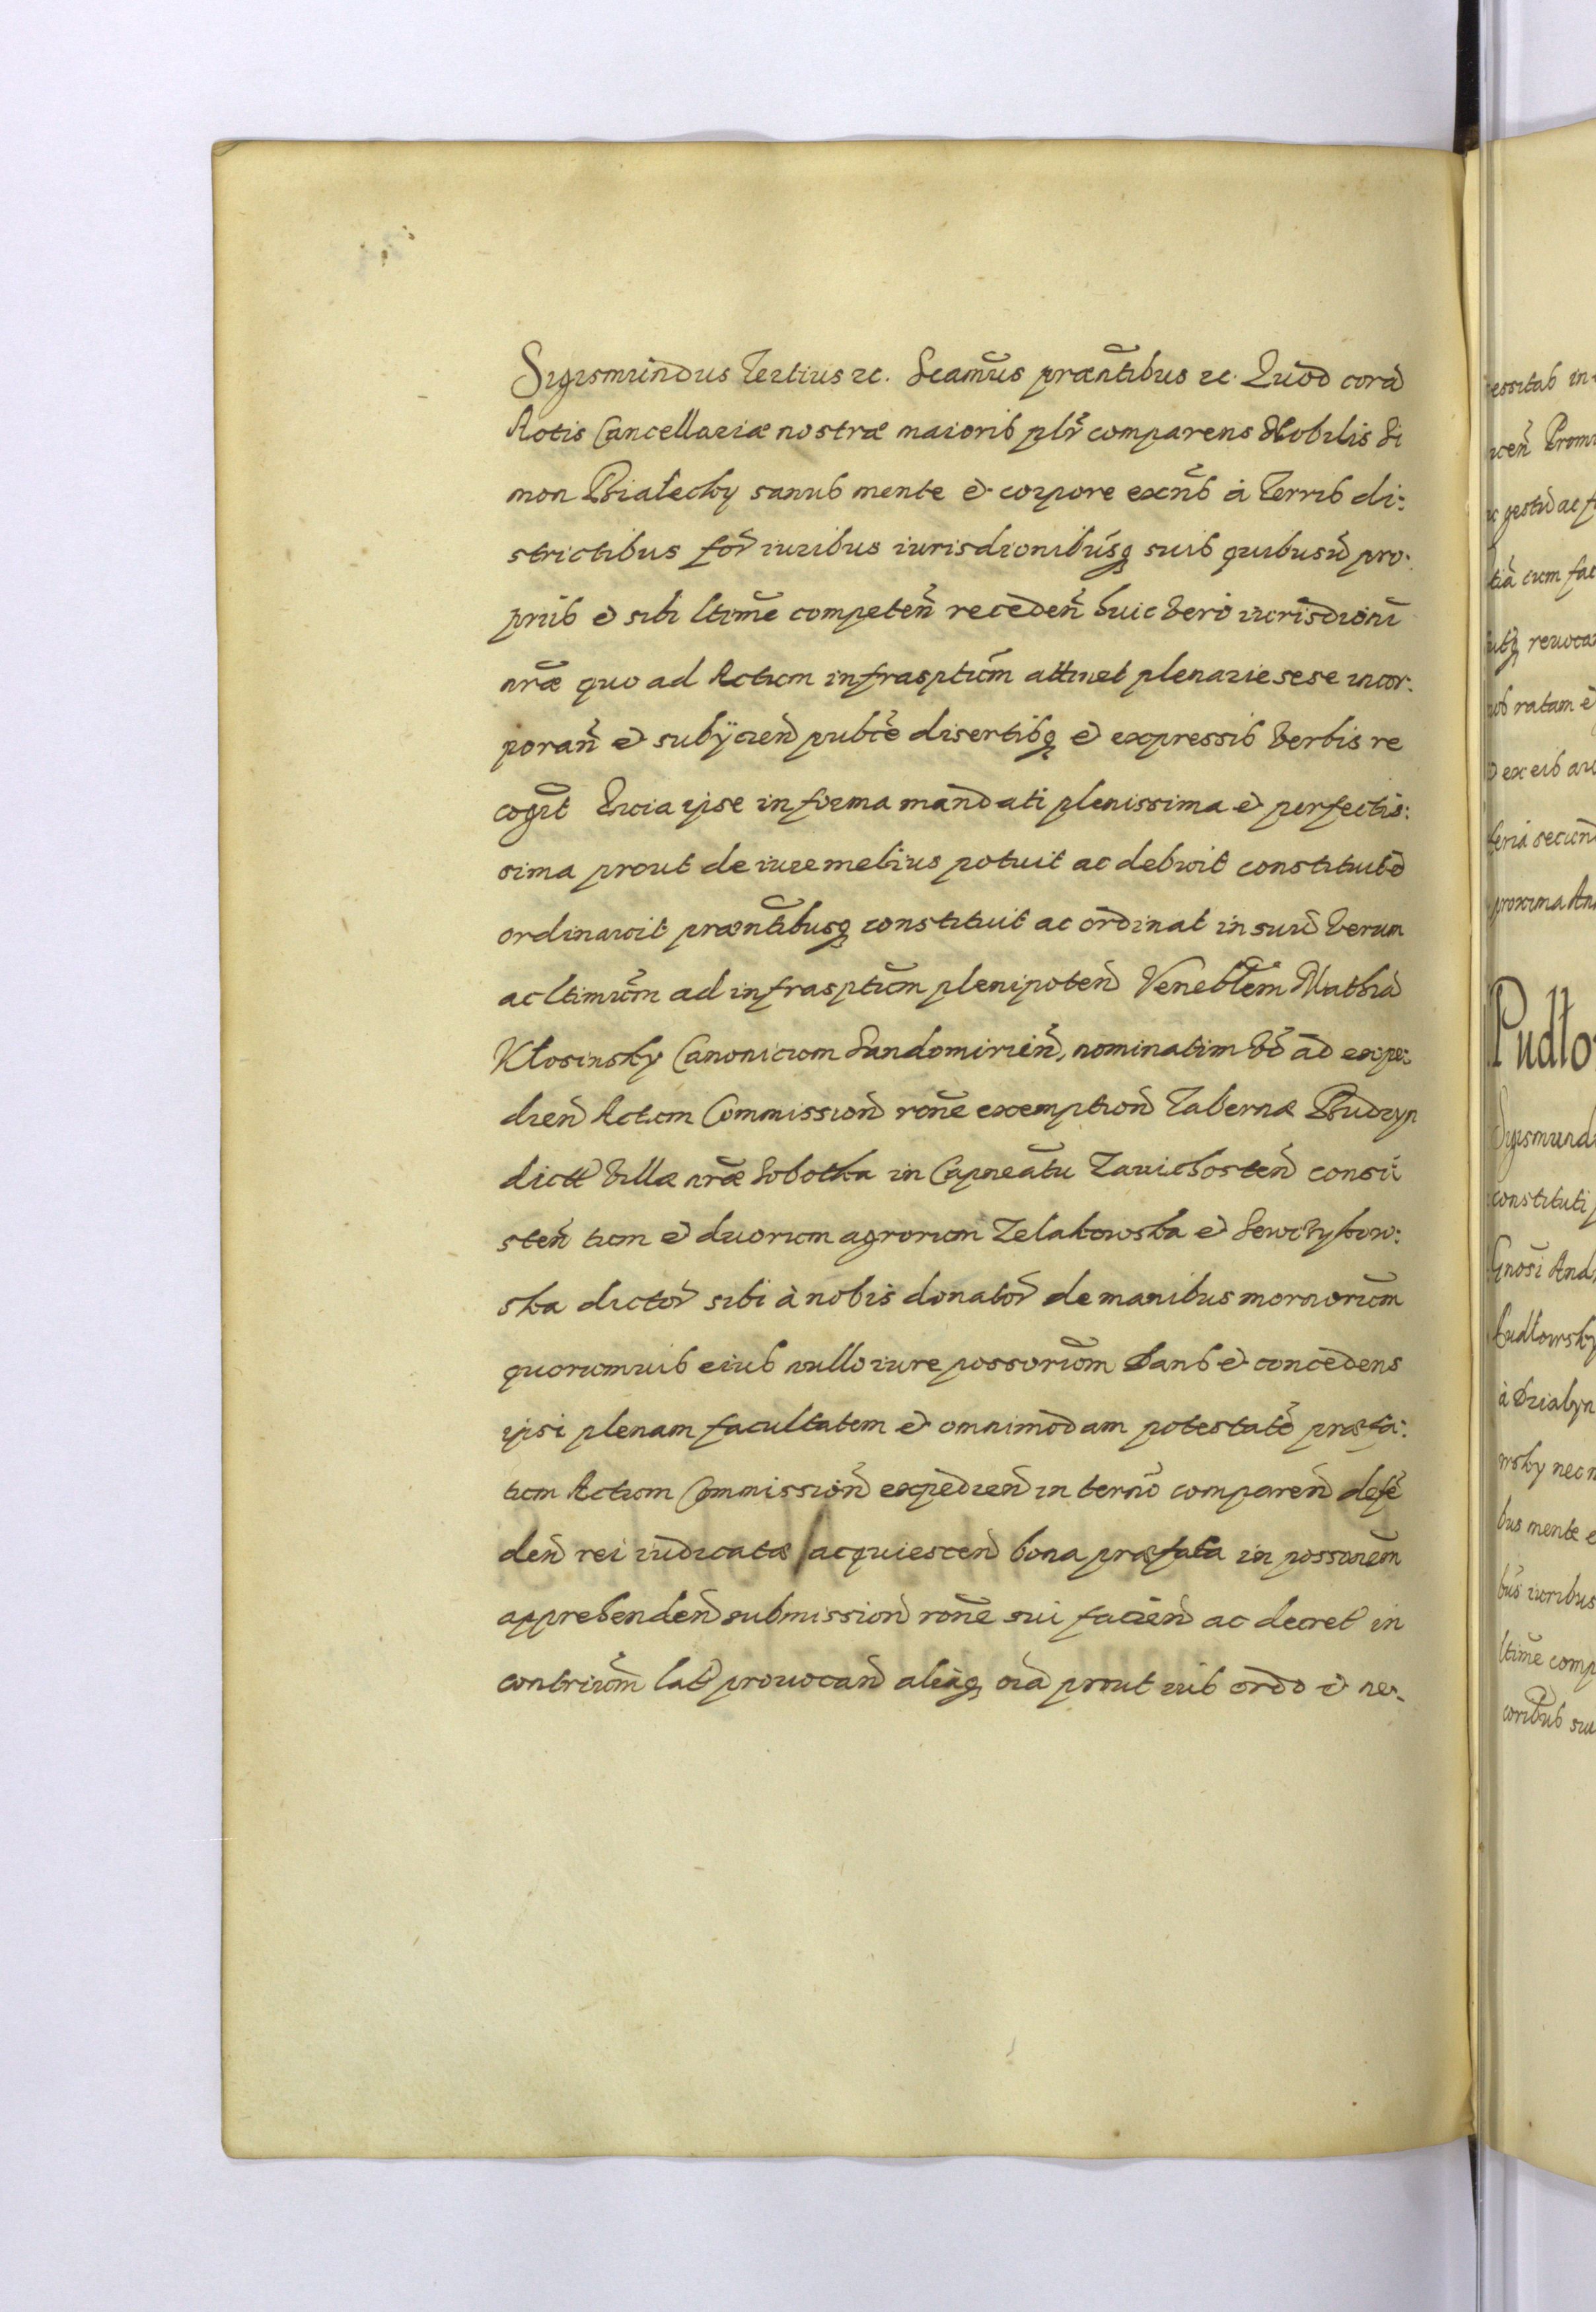 Sigismundus Tertius etc. Scam̃us præntibus etc. Quod corã
Actis Cancellariæ nostræ maioris plr̃ comparens Nobilis Si
mon Białecky sanus mente et corpore exñs à Terris di:
strictibus for̃ iuribus iurisdionibusq suis quibusũ pro:
priis et sibi ltime competeñ recedeñ huic vero iurisdioni
nræ quo ad Actum infrasptum attinet plenarie sese incor:
porañ et subijcieñ publce disertisq et expressis verbis re
cogit Quia ipse in forma mandati plenissima et perfectis:
sima prout de iure melius potuit ac debuit constituit et
ordinavit præntibusq constituit ac ordinat in suũ verum
ac ltimum ad infrasptum plenipoteñ Veneblem Mathiã
Kłosinsky Canonicum Sandomirieñ, nominatim ad expe:
dieñ Actum Commissioñ rone exemptioñ Tabernæ Budzyn
dict villæ nræ Sobotka in Capneatu Zavichosteñ consi:
steñ tum et duorum agrorum Zelakowska et Sewczykow:
ska dictor̃ sibi à nobis donator̃ de manibus mornorum
quorumvis eius nullo iure possorum Dans et concedens
ipsi plenam facultatem et omnimodam potestatẽ præfa:
tum Actum Commissioñ expedieñ in termo compareñ defẽ
deñ rei iudicatæ acquiesceñ bona præfata in possonem
apprehendeñ submissioñ rone sui facieñ ac decret in
contrium lat provocañ aliaq oia prout iuis ordo et ne:
essitas in
iceñ Promi
gestũ ac f
tiã cum fac
utq revoca
ratam et
ex eis au
feria secund
proxima An
Pudło
Sigismund
constituti p
Gnosi And
Pudłowsky
à Dzialyn
wsky nec n
bus mente e
bus iuribus
ltime comp
su